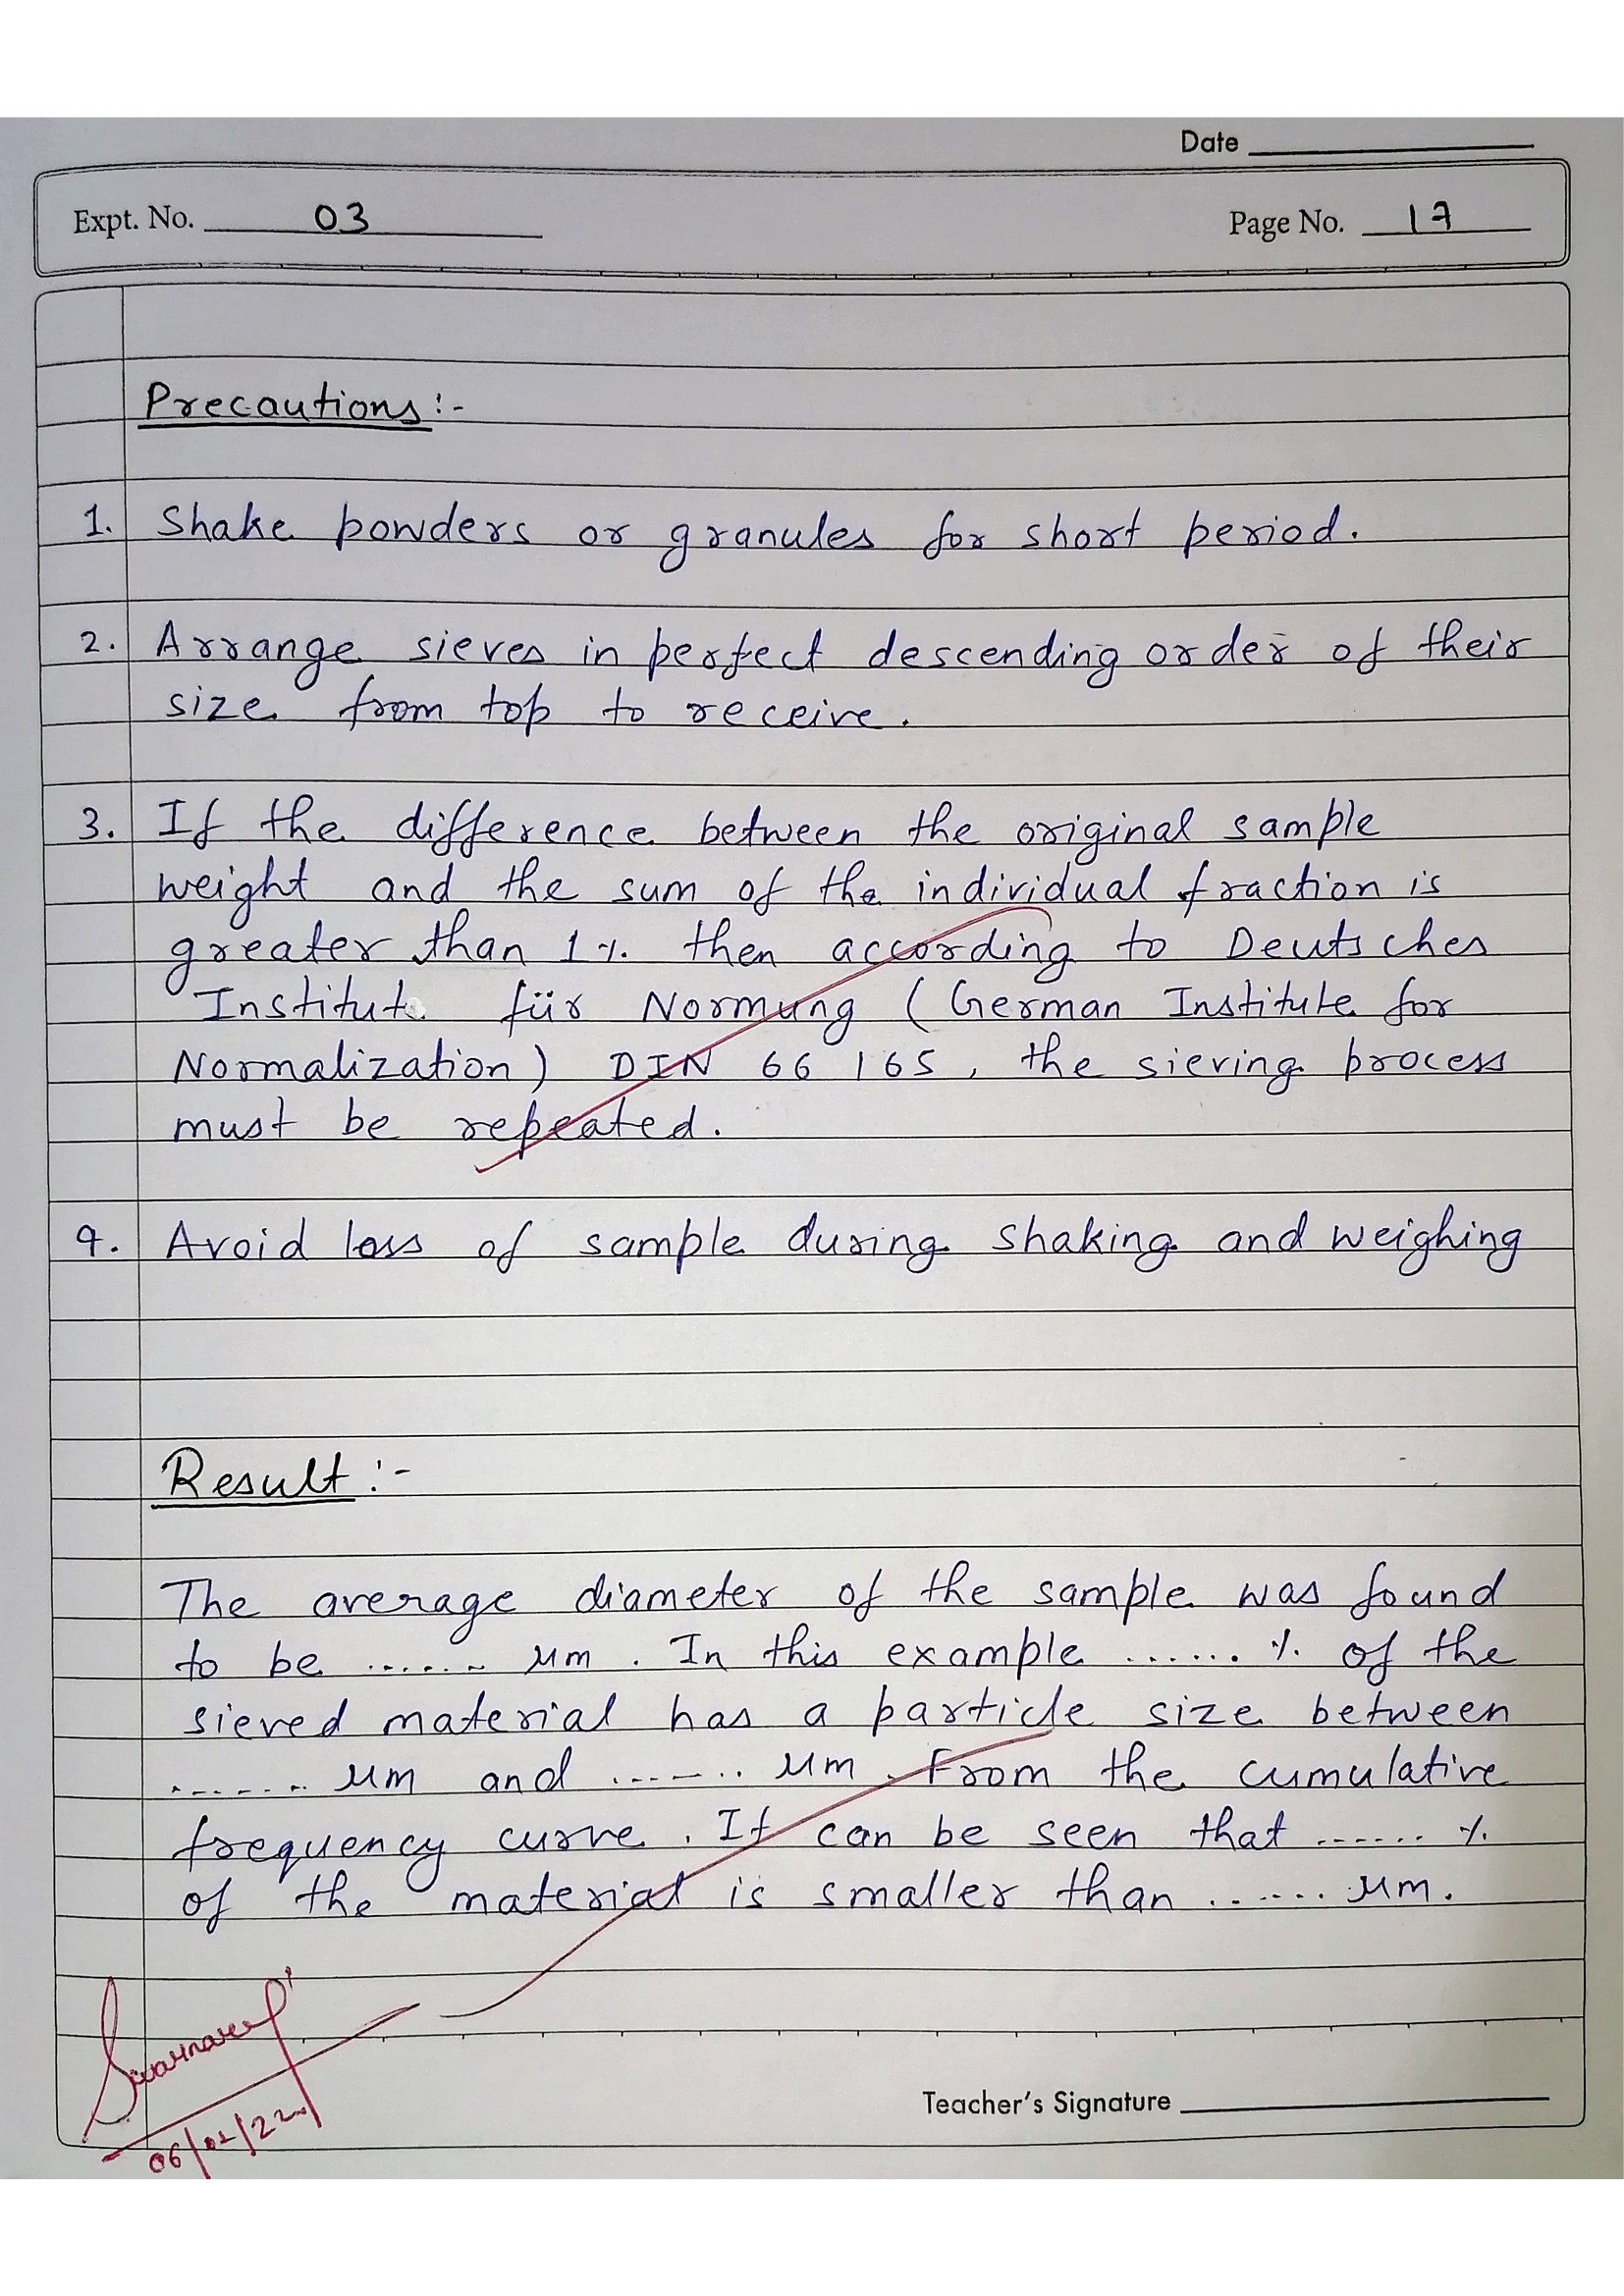 Date
Expt. No. 03
Page No. 17
Precautions :-
1. Shake powders or granules for short period.
2. Arrange sieves in perfect descending order of their
size from top to receive.
3. If the difference between the original sample
weight and the sum of the individual fraction is
greater than 1% then according to Deutsches
Institute für Normung (German Institute for
Normalization) DIN 66 165, the sieving process
must be repeated.
4. Avoid loss of sample during shaking and weighing
Result :-
The average diameter of the sample was found
to be ...... μm. In this example ...... % of the
sieved material has a particle size between
....... μm and ....... μm. From the cumulative
frequency curve. It can be seen that ...... %
of the material is smaller than ...... μm.
Teacher's Signature